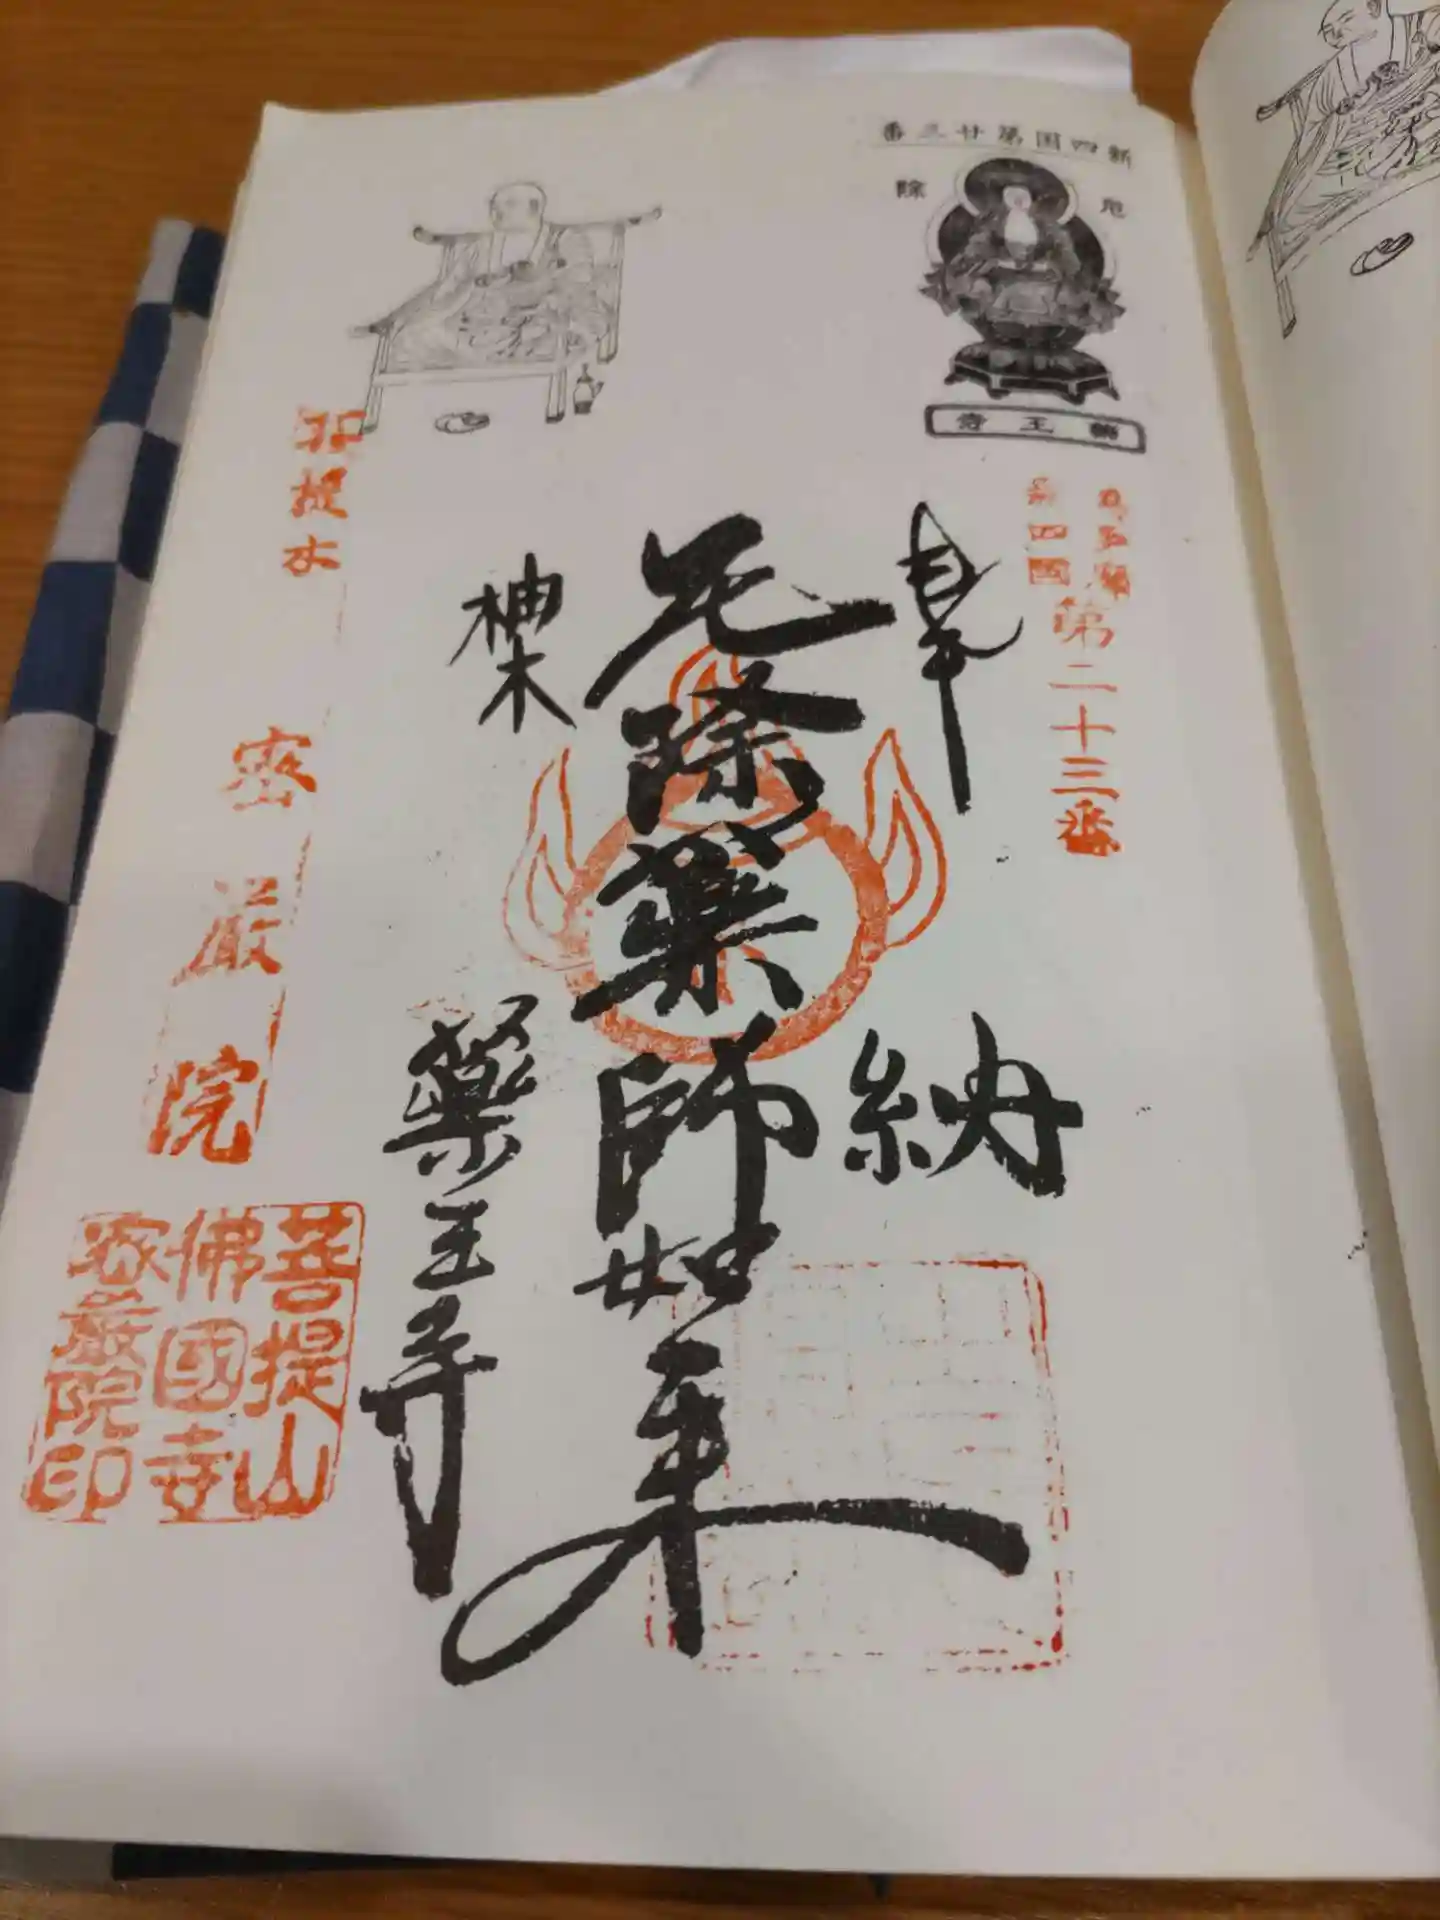 新四国第廿三番
厄除
薬王寺
新四國
第二十三番
奉
納
厄除薬師如来
柚木
薬王寺
菩提水
密厳院
菩提山
佛國寺
密嚴院印